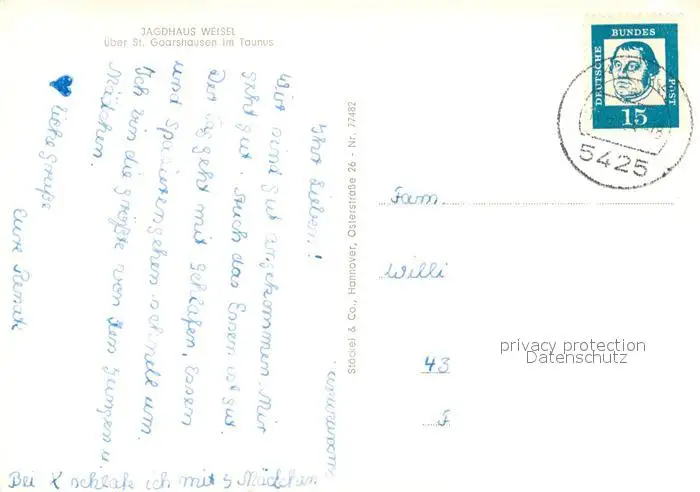 JAGDHAUS WEISEL
über St. Goarshausen im Taunus
Ihr Lieben!
Wir sind gut angekommen. Mir
geht gut. Auch das Essen ist gut.
Der Tag geht mit Schlafen, Essen
und Spazieren gehen schnell um.
Ich bin die größte von den Jungen u.
Mädchen.
liebe Grüße
Eure Renate
Bei X schlafe ich mit 5 Mädchen
Stöckel & Co., Hannover, Osterstraße 26 - Nr. 77482
DEUTSCHE
BUNDES
POST
15
5425
Fam.
Willi
43
F
privacy protection
Datenschutz